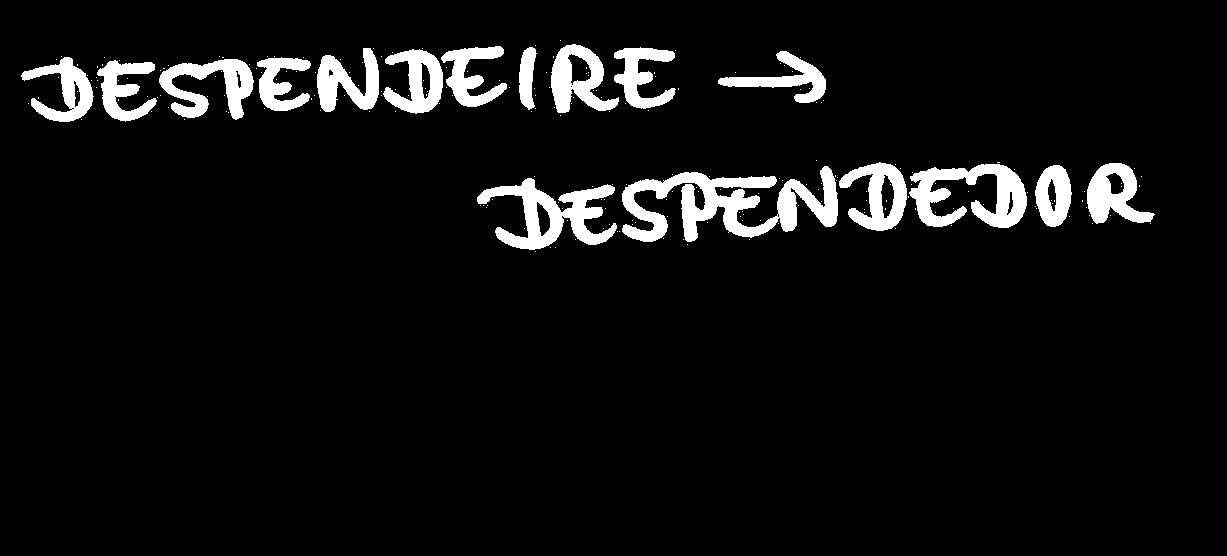 DESPENDEIRE →
DESPENDEDOR